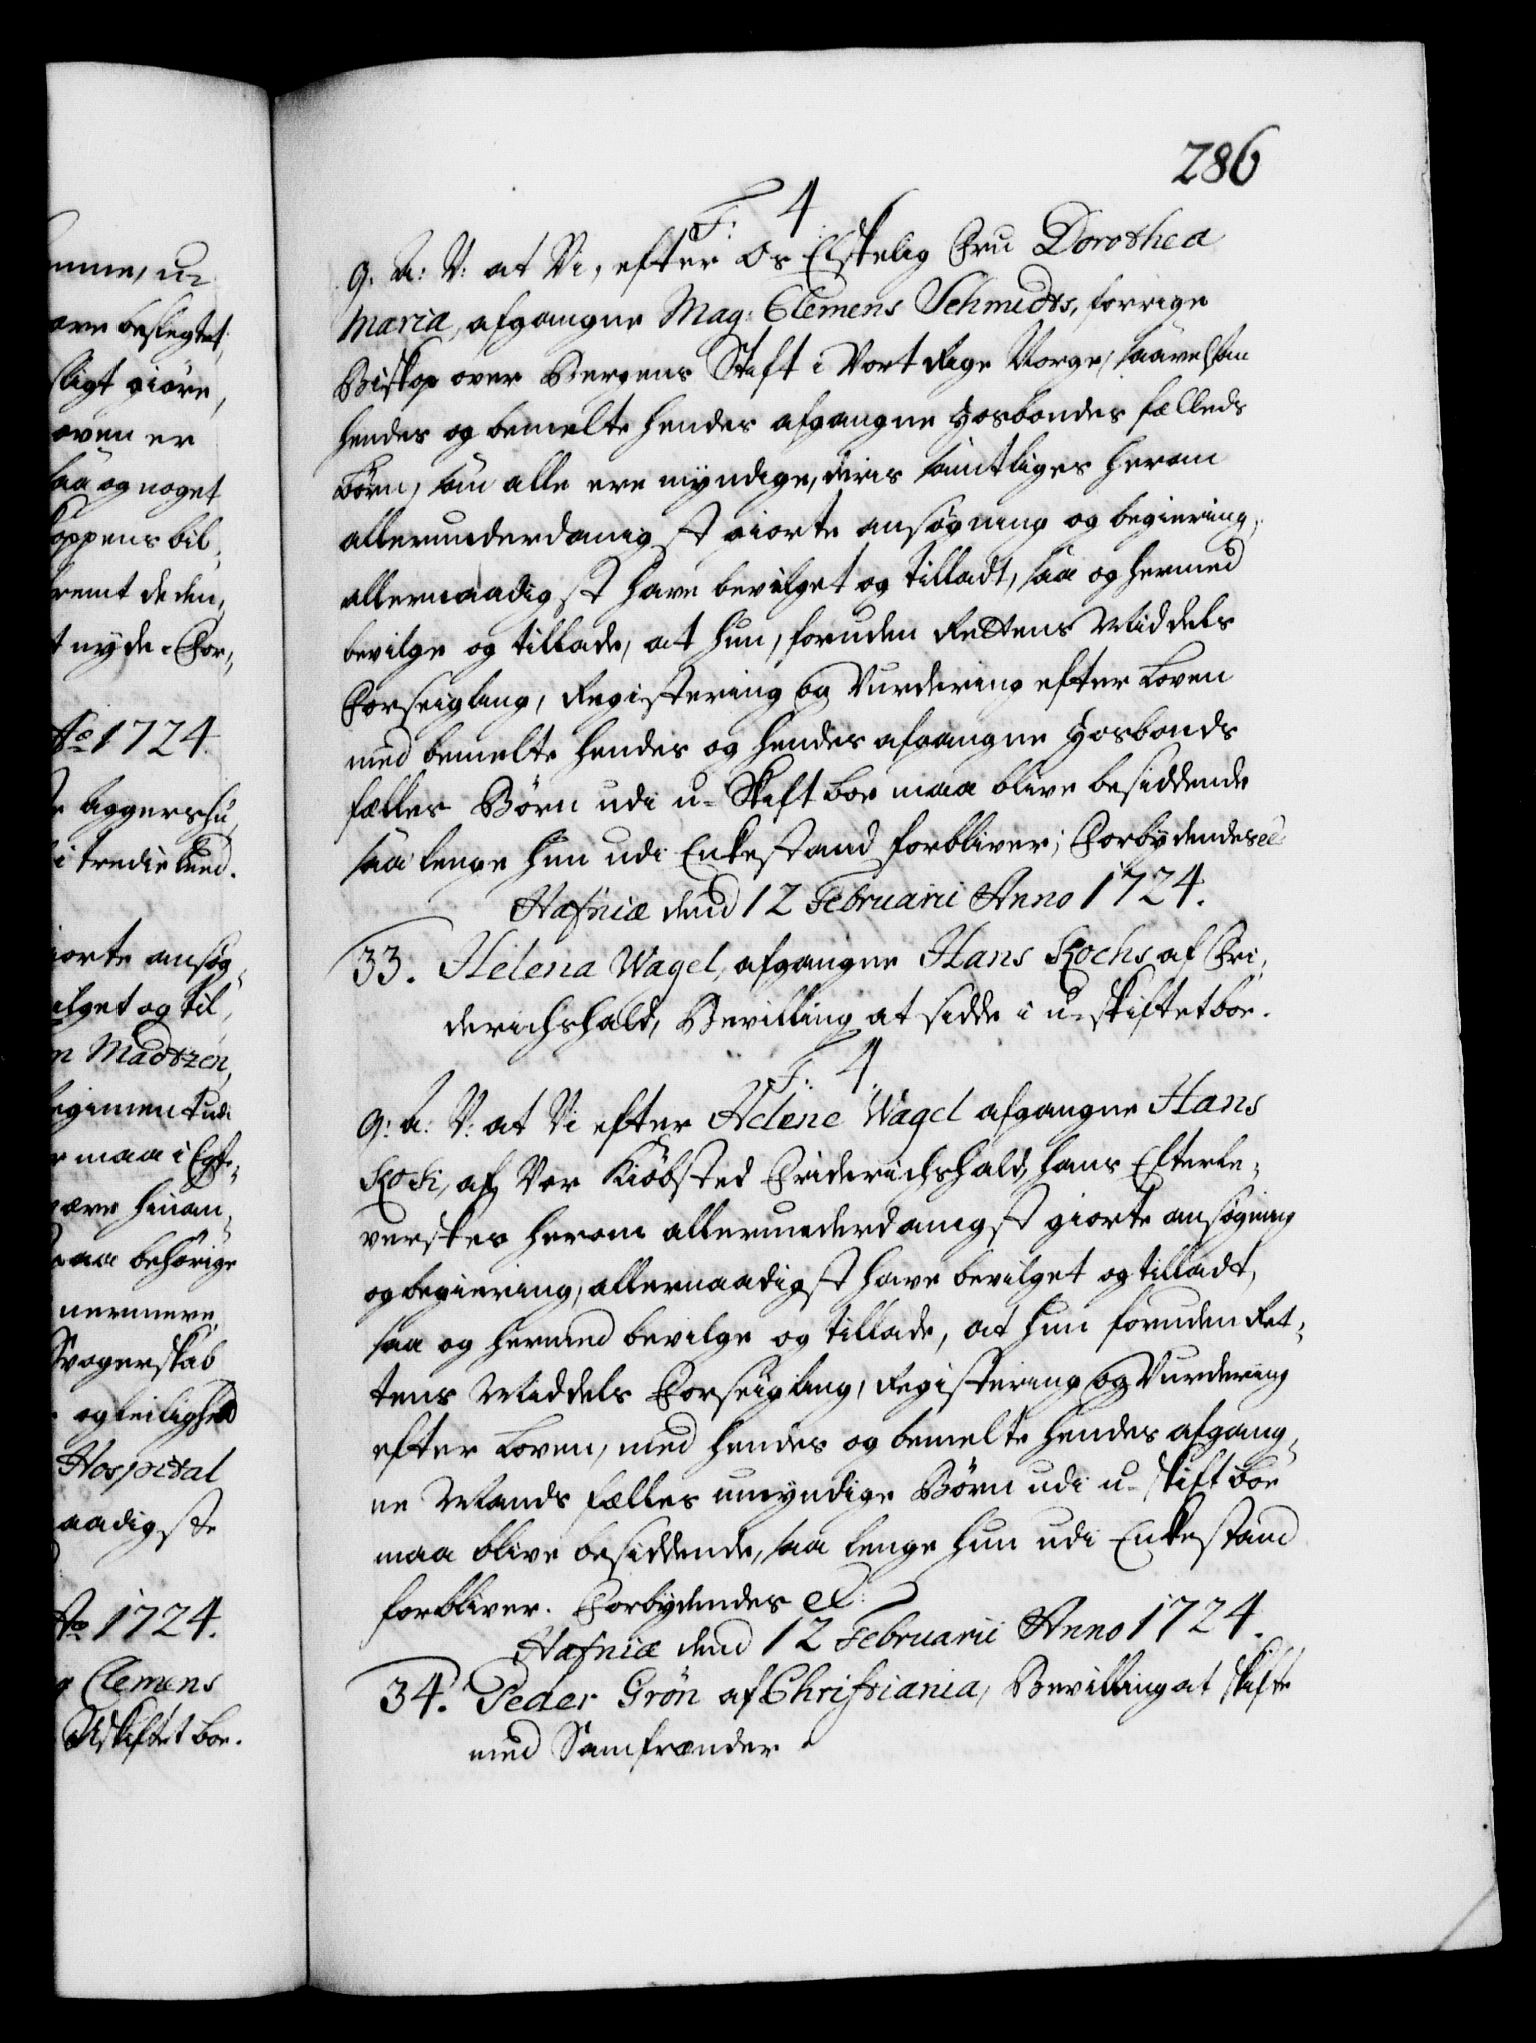 286
F: 4
g. A: V: at Vi, efter os Elskelig Fru Dorothea
Maria, afgangne Mag: Clemens Schmidts, forrige
Biskop over Bergens Stift i Vort Rige Norge, saavelsom
hendes og bemelte hendes afgangne Hosbondes fælleds
Børn, som alle ere myndige, deris samtliges herom
allerunderdanigst giorte ansøgning og begiering,
allernaadigst have bevilget og tilladt, saa og hermed
bevilge og tillade, at hun, foruden Rettens Middels
Forseigling, Registering og Vurdering efter Loven
med bemelte hendes og hendes afgangne Hosbonds
fælles Børn udi u-Skift boe maa blive besiddende
saa lenge hun udi Enkestand forbliver; Forbydendes etc
Hafniæ dend 12 Februarii Anno 1724.
33. Helena Wagel, afgangne Hans Kochs af Fri,
derichshald, Bevilling at sidde i u-skiftet boe.
F: 4.
g: A: V: at Vi efter Helene Wagel afgangne Hans
Koch, af Vor Kiøbsted Friderichshald, hans Efterle-
verskes herom allerunderdanigst giorte ansøgning
og begiering, allernaadigst have bevilget og tilladt,
saa og hermed bevilge og tillade, at hun foruden Ret-
tens Middels Forseigling, Registering og Vurdering
efter Loven, med hendes og bemelte hendes afgang,
ne Mands fælles umyndige Børn udi u-skift boe
maa blive besiddende, saa lenge hun udi Enkestand
forbliver. Forbydendes etc:
Hafniæ dend 12 Februarii Anno 1724.
34. Peder Grön af Christiania, Bevilling at skifte
med Samfrender.
ove beslegtet
sligt giøre,
oven er
saa og noget
oppens bil,
fremt de den,
t nyde. For,
Ao 1724.
Aggershu,
i tredie leed.
iorte ansøg,
ilget og til,
n Madtzen,
egiment udi
maa i Egte,
være hinan,
maa behørige
nermere
Svogerskab
og leilighed
Hospital
aadigste
Ao 1724.
Clemens
Uskiftet boe.